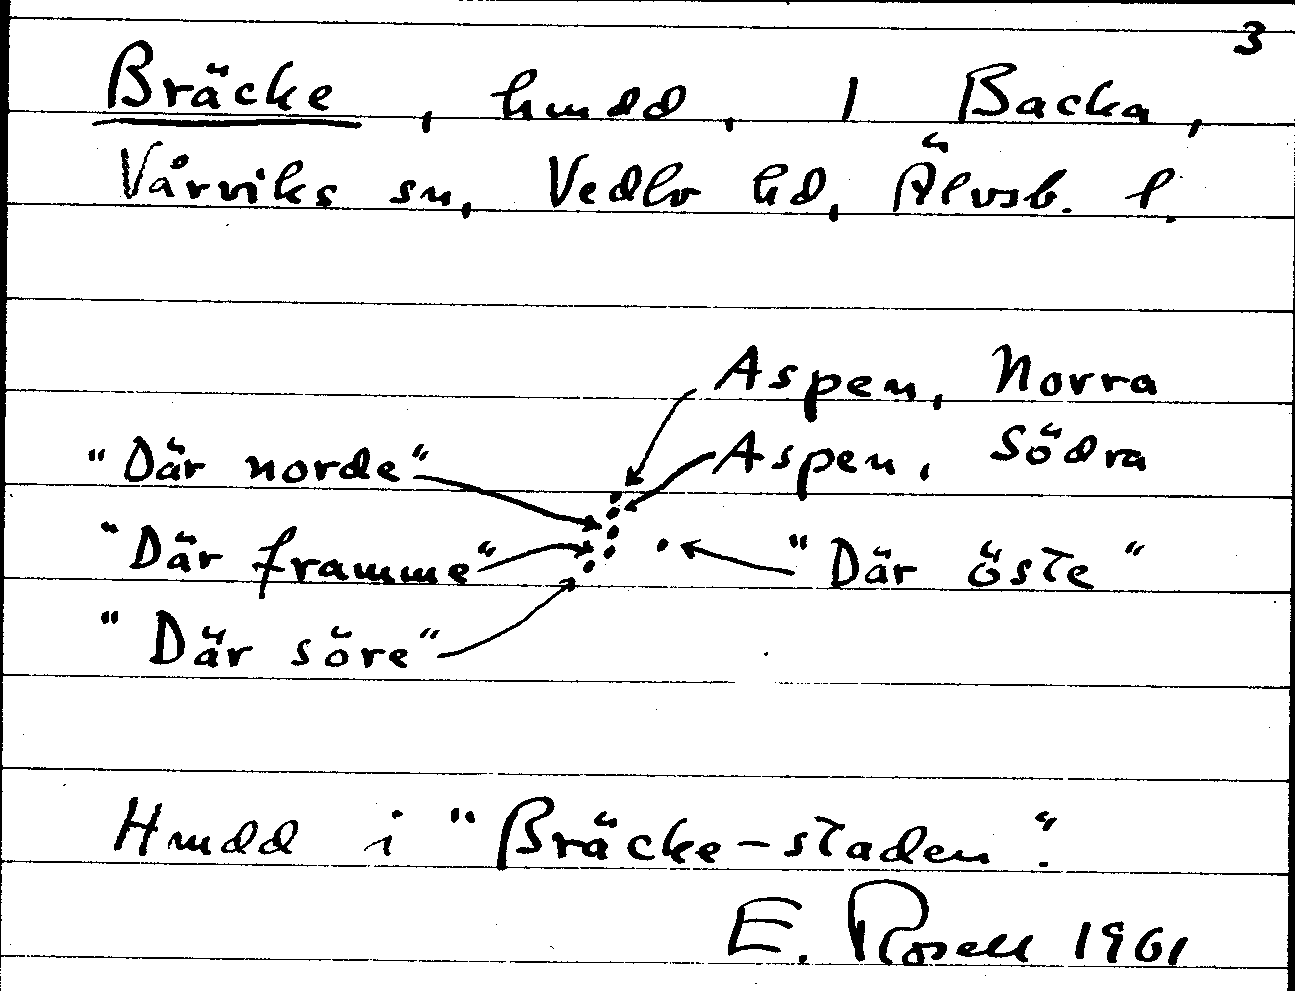 3
Bräcke, hmdd, 1 Backa,
Vårviks sn, Vedbo hd, Älvsb. l.
Aspen, Norra
"Där norde" Aspen, Södra
"Där framme" "Där öste"
"Där söre"
Hmdd i "Bräcke-staden".
E. Rosell 1961